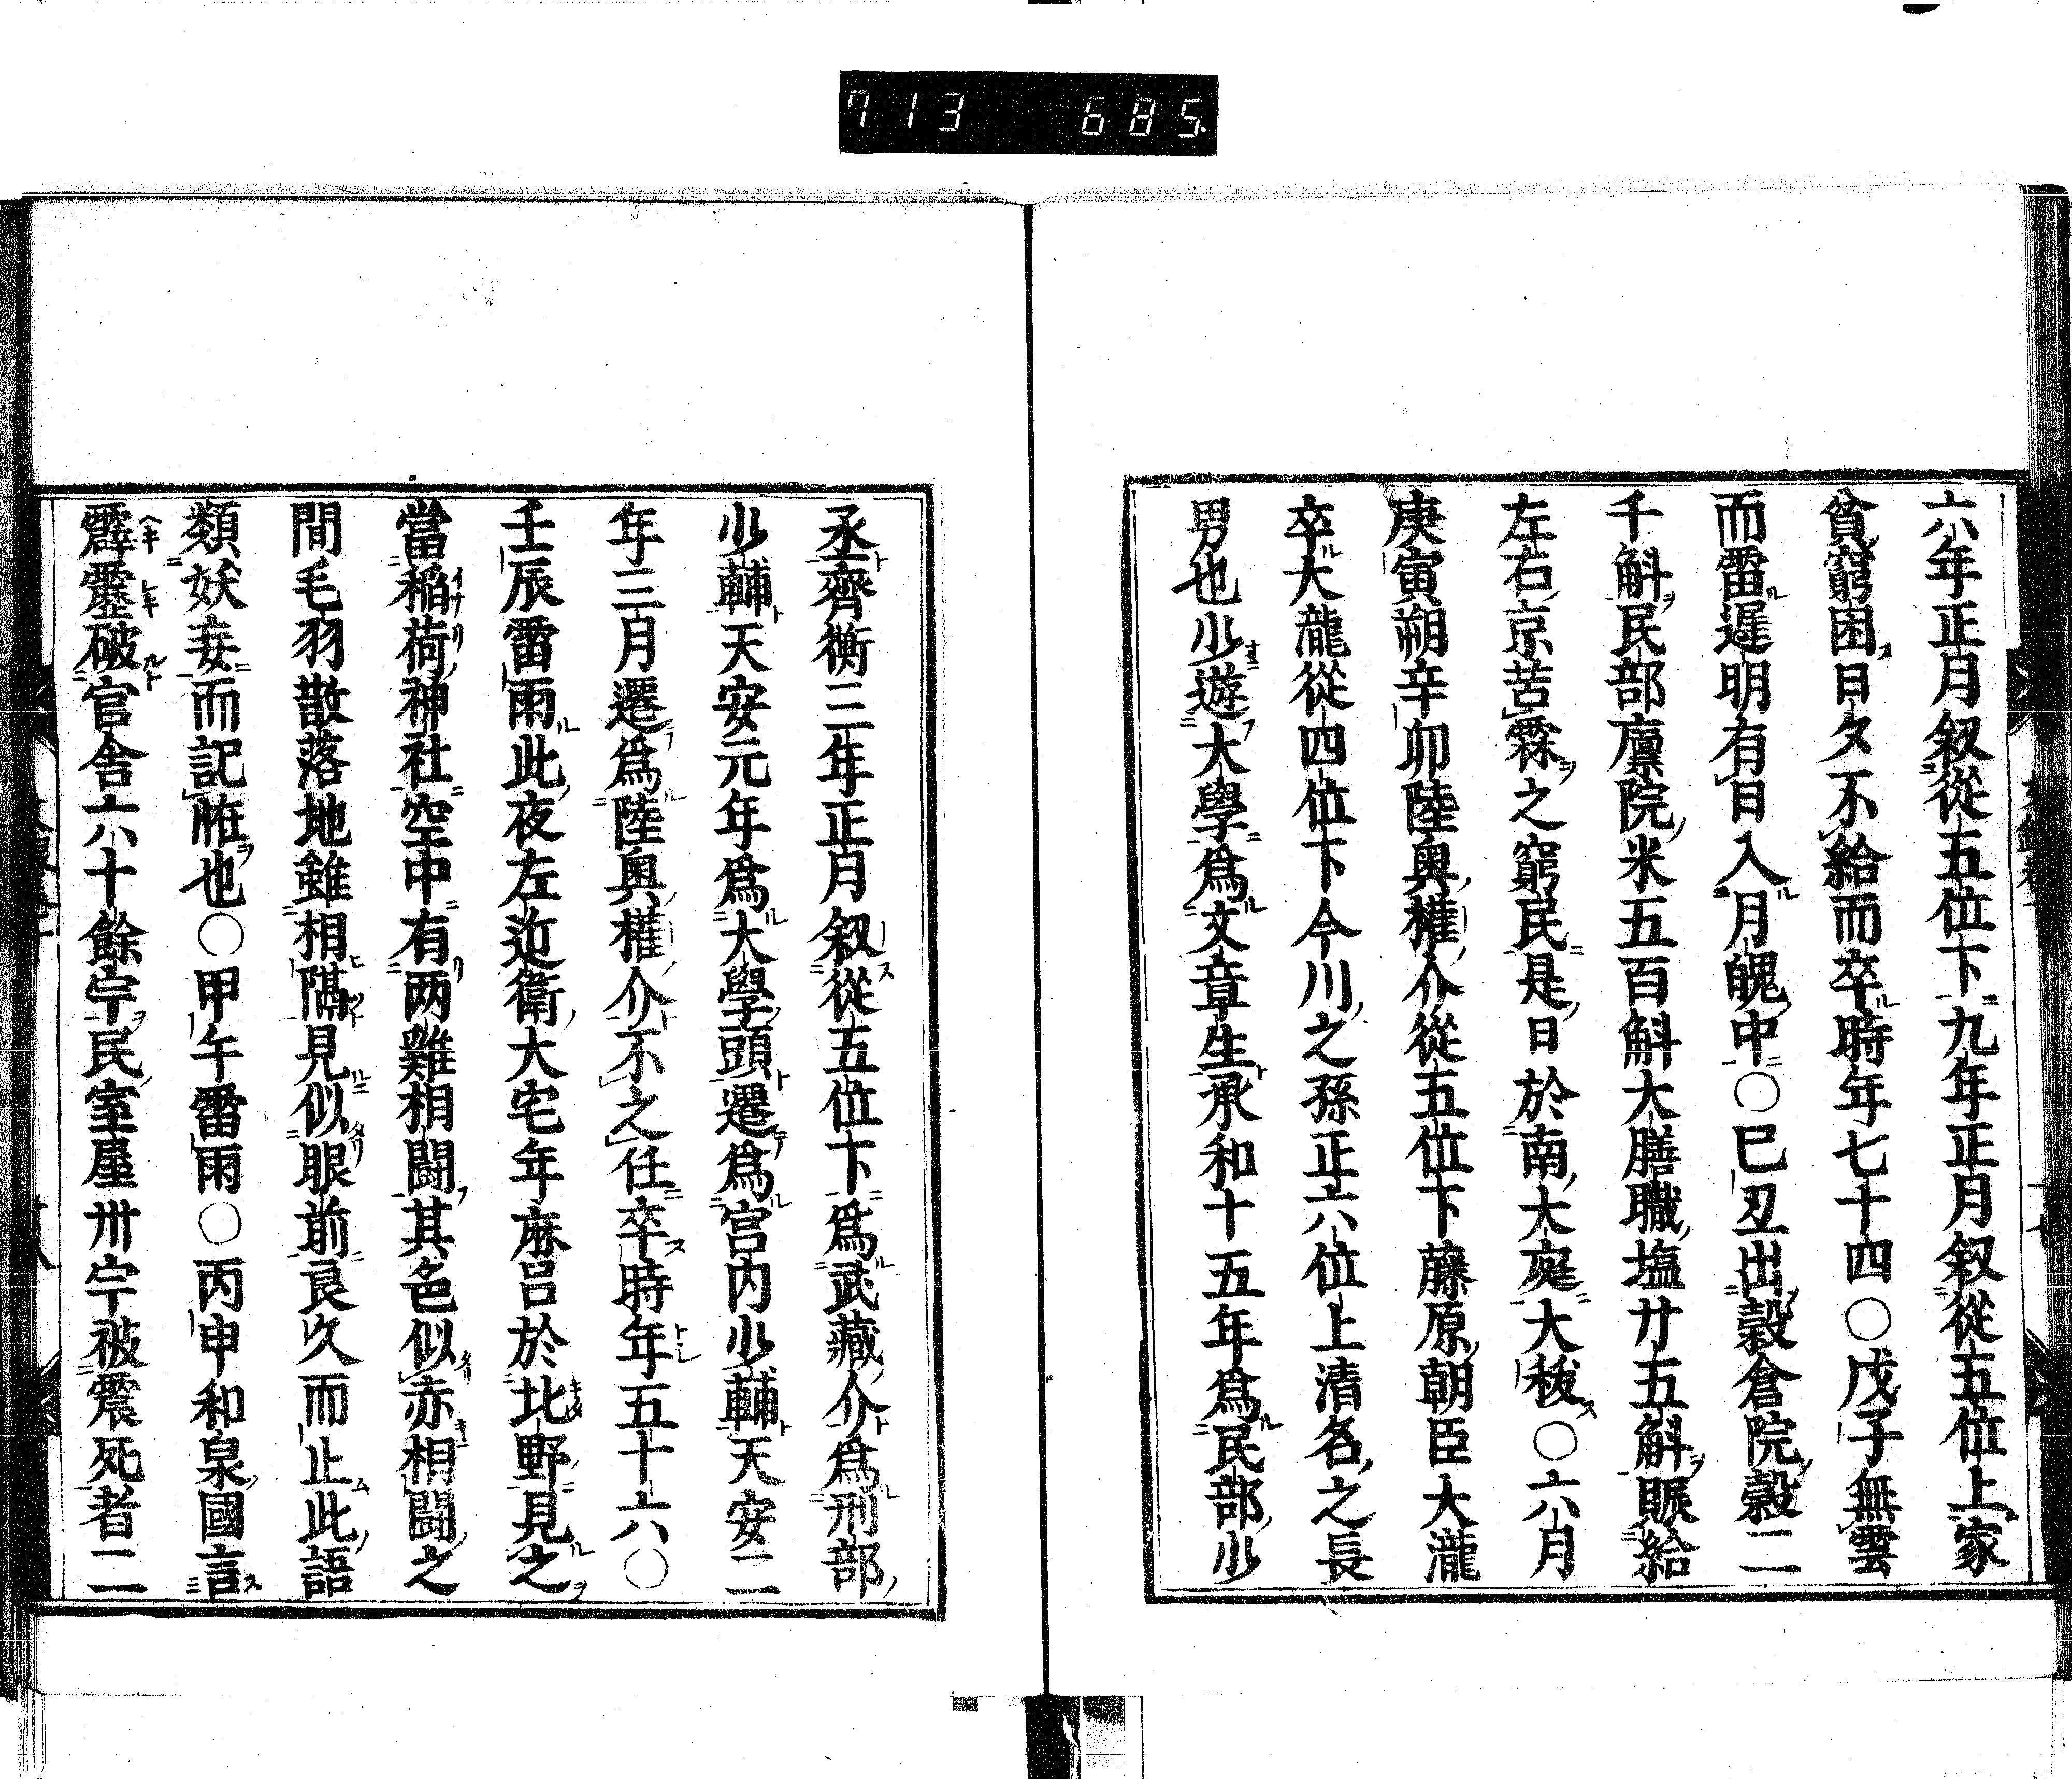 713 685
六年正月叙從五位下九年正月叙從五位上家
貧窮困日夕不給而卒時年七十四〇戊子無雲
而雷遲明有日入月魄中〇巳丑出穀倉院穀二
千斛民部廩院米五百斛大膳職塩廿五斛賑給
左右京苦霖之窮民是日於南大庭大祓〇六月
庚寅朔辛卯陸奥權介從五位下藤原朝臣大瀧
卒大瀧從四位下今川之孫正六位上清名之長
男也少遊大學爲文章生承和十五年爲民部少
丞齊衡三年正月叙從五位下爲武藏介爲刑部
少輔天安元年爲大學頭遷爲宮内少輔天安二
年三月遷爲陸奥權介不之任卒時年五十六〇
壬辰雷雨此夜左近衛大宅年麻呂於北野見之
當稲荷神社空中有两雞相闘其色似赤相闘之
間毛羽散落地雖相隔見似眼前良久而止此語
類妖妄而記恠也〇甲午雷雨〇丙申和泉國言
霹靂破官舎六十餘宇民室屋卅宇被震死者二